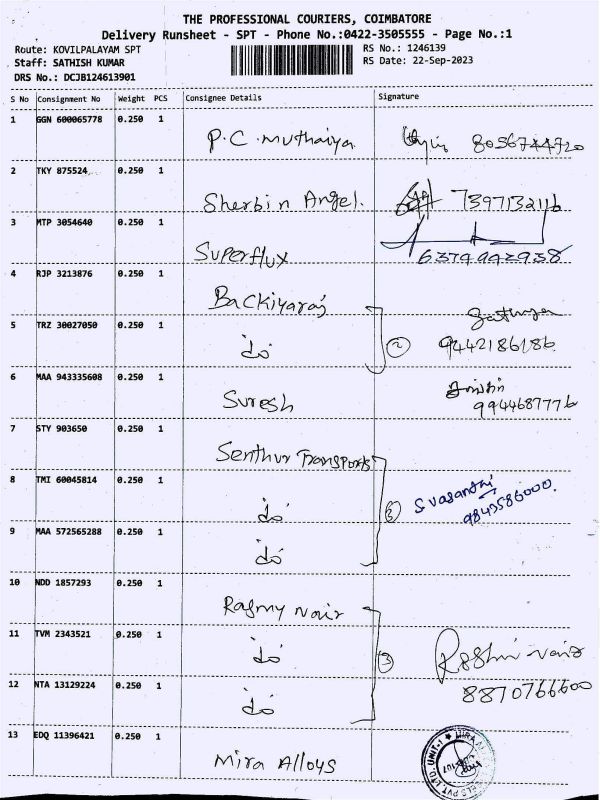 THE PROFESSIONAL COURIERS, COIMBATORE
Delivery Runsheet - SPT - Phone No.:0422-3505555 - Page No.:1
Route: KOVILPALAYAM SPT
RS No.: 1246139
Staff: SATHISH KUMAR
RS Date: 22-Sep-2023
DRS No.: DCJB124613901
S No Consignment No Weight PCS Consignee Details Signature
1 GGN 600065778 0.250 1
P.C. Muthaiya 8056744720
2 TKY 875524 0.250 1
Sherbin Angel. 7397132116
3 MTP 3054640 0.250 1
Superflux
4 RJP 3213876 0.250 1
Backiyaraj
5 TRZ 30027050 0.250 1
do 2 9442186186
6 MAA 943335608 0.250 1
Suresh 9944687776
7 STY 903650 0.250 1
Senthur Transports
8 TMI 60045814 0.250 1
do 3 S Vasanthi
9843586000.
9 MAA 572565288 0.250 1
do
10 NDD 1857293 0.250 1
Rasmy Nair
11 TVM 2343521 0.250 1
do 3 Roshni Nair
12 NTA 13129224 0.250 1
do 8870766600
13 EDQ 11396421 0.250 1
Mira Alloys